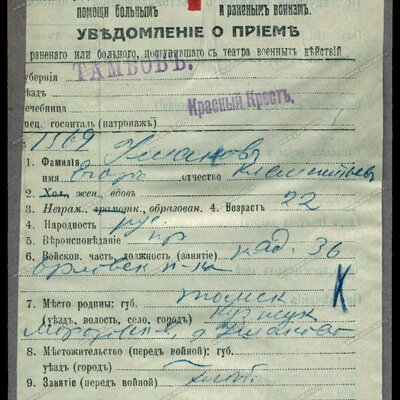 помощи больнымъ и раненымъ воинамъ.
УВѢДОМЛЕНІЕ О ПРІЕМѢ
раненаго или больного, поступившаго съ театра военныхъ дѣйствій
губернія ТАМБОВЪ.
уѣздъ
лечебница Красный Крестъ.
спец. госпиталь (патронажъ)
1569
1. Фамилія Уманов
имя Егоръ отчество Климентьев
2. Хол., жен., вдовъ
3. Неграм., грамотн., образован. 4. Возрастъ 22
4. Народность рус
5. Вѣроисповѣданіе пр
6. Войсков. часть, должность (занятіе) ряд. 36
Орловск п-ка
7. Мѣсто родины: губ. Томск
(уѣздъ, волость, село, городъ)
8. Мѣстожительство (передъ войной): губ.
уѣздъ (городъ)
9. Занятіе (передъ войной) хлѣб.